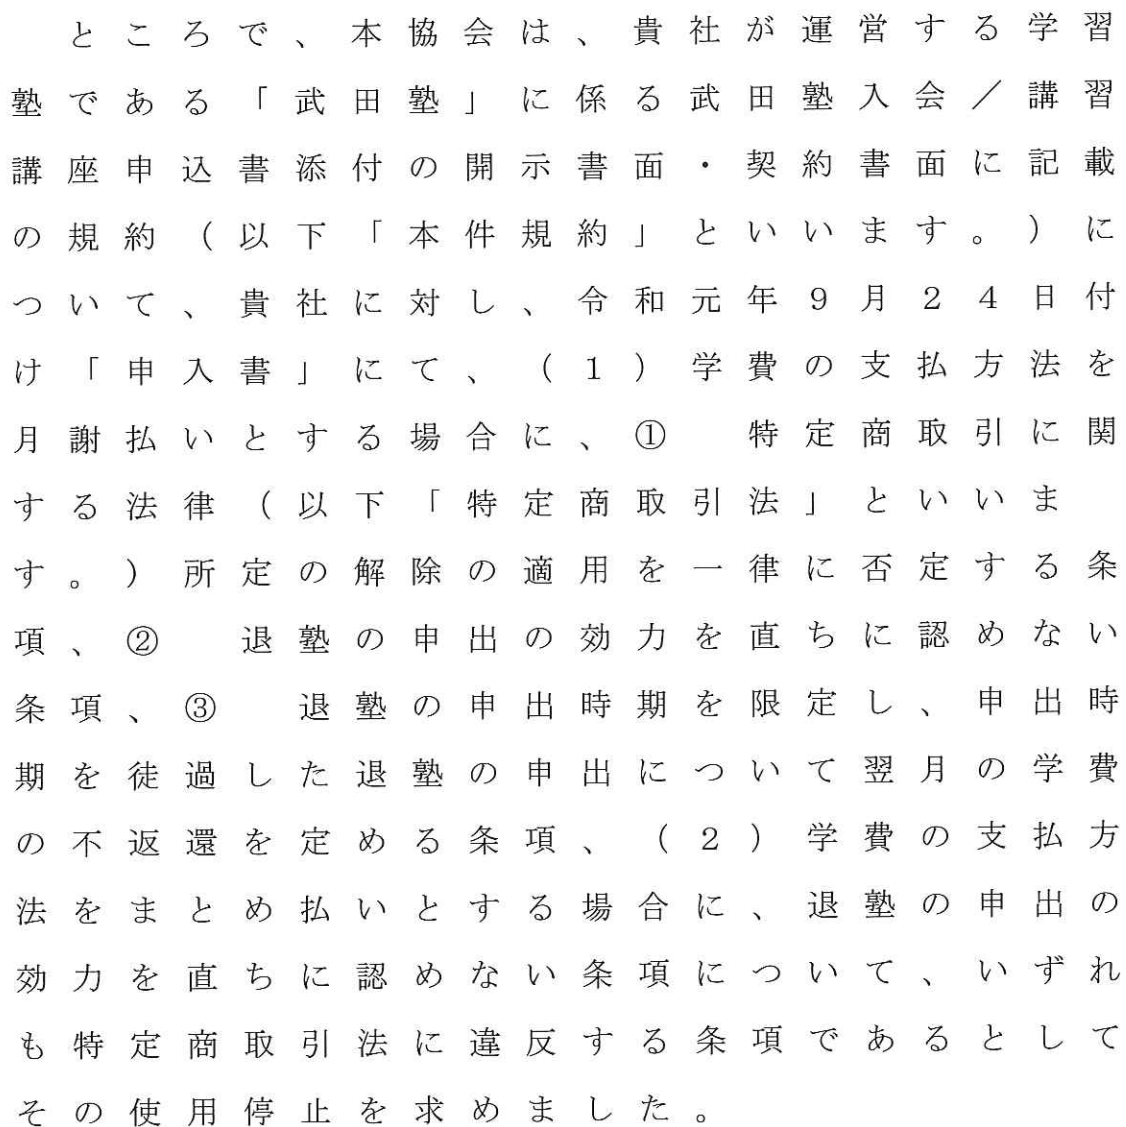 ところで、本協会は、貴社が運営する学習
塾である「武田塾」に係る武田塾入会／講習
講座申込書添付の開示書面・契約書面に記載
の規約（以下「本件規約」といいます。）に
ついて、貴社に対し、令和元年９月２４日付
け「申入書」にて、（１）学費の支払方法を
月謝払いとする場合に、①　特定商取引に関
する法律（以下「特定商取引法」といいま
す。）所定の解除の適用を一律に否定する条
項、②　退塾の申出の効力を直ちに認めない
条項、③　退塾の申出時期を限定し、申出時
期を徒過した退塾の申出について翌月の学費
の不返還を定める条項、（２）学費の支払方
法をまとめ払いとする場合に、退塾の申出の
効力を直ちに認めない条項について、いずれ
も特定商取引法に違反する条項であるとして
その使用停止を求めました。